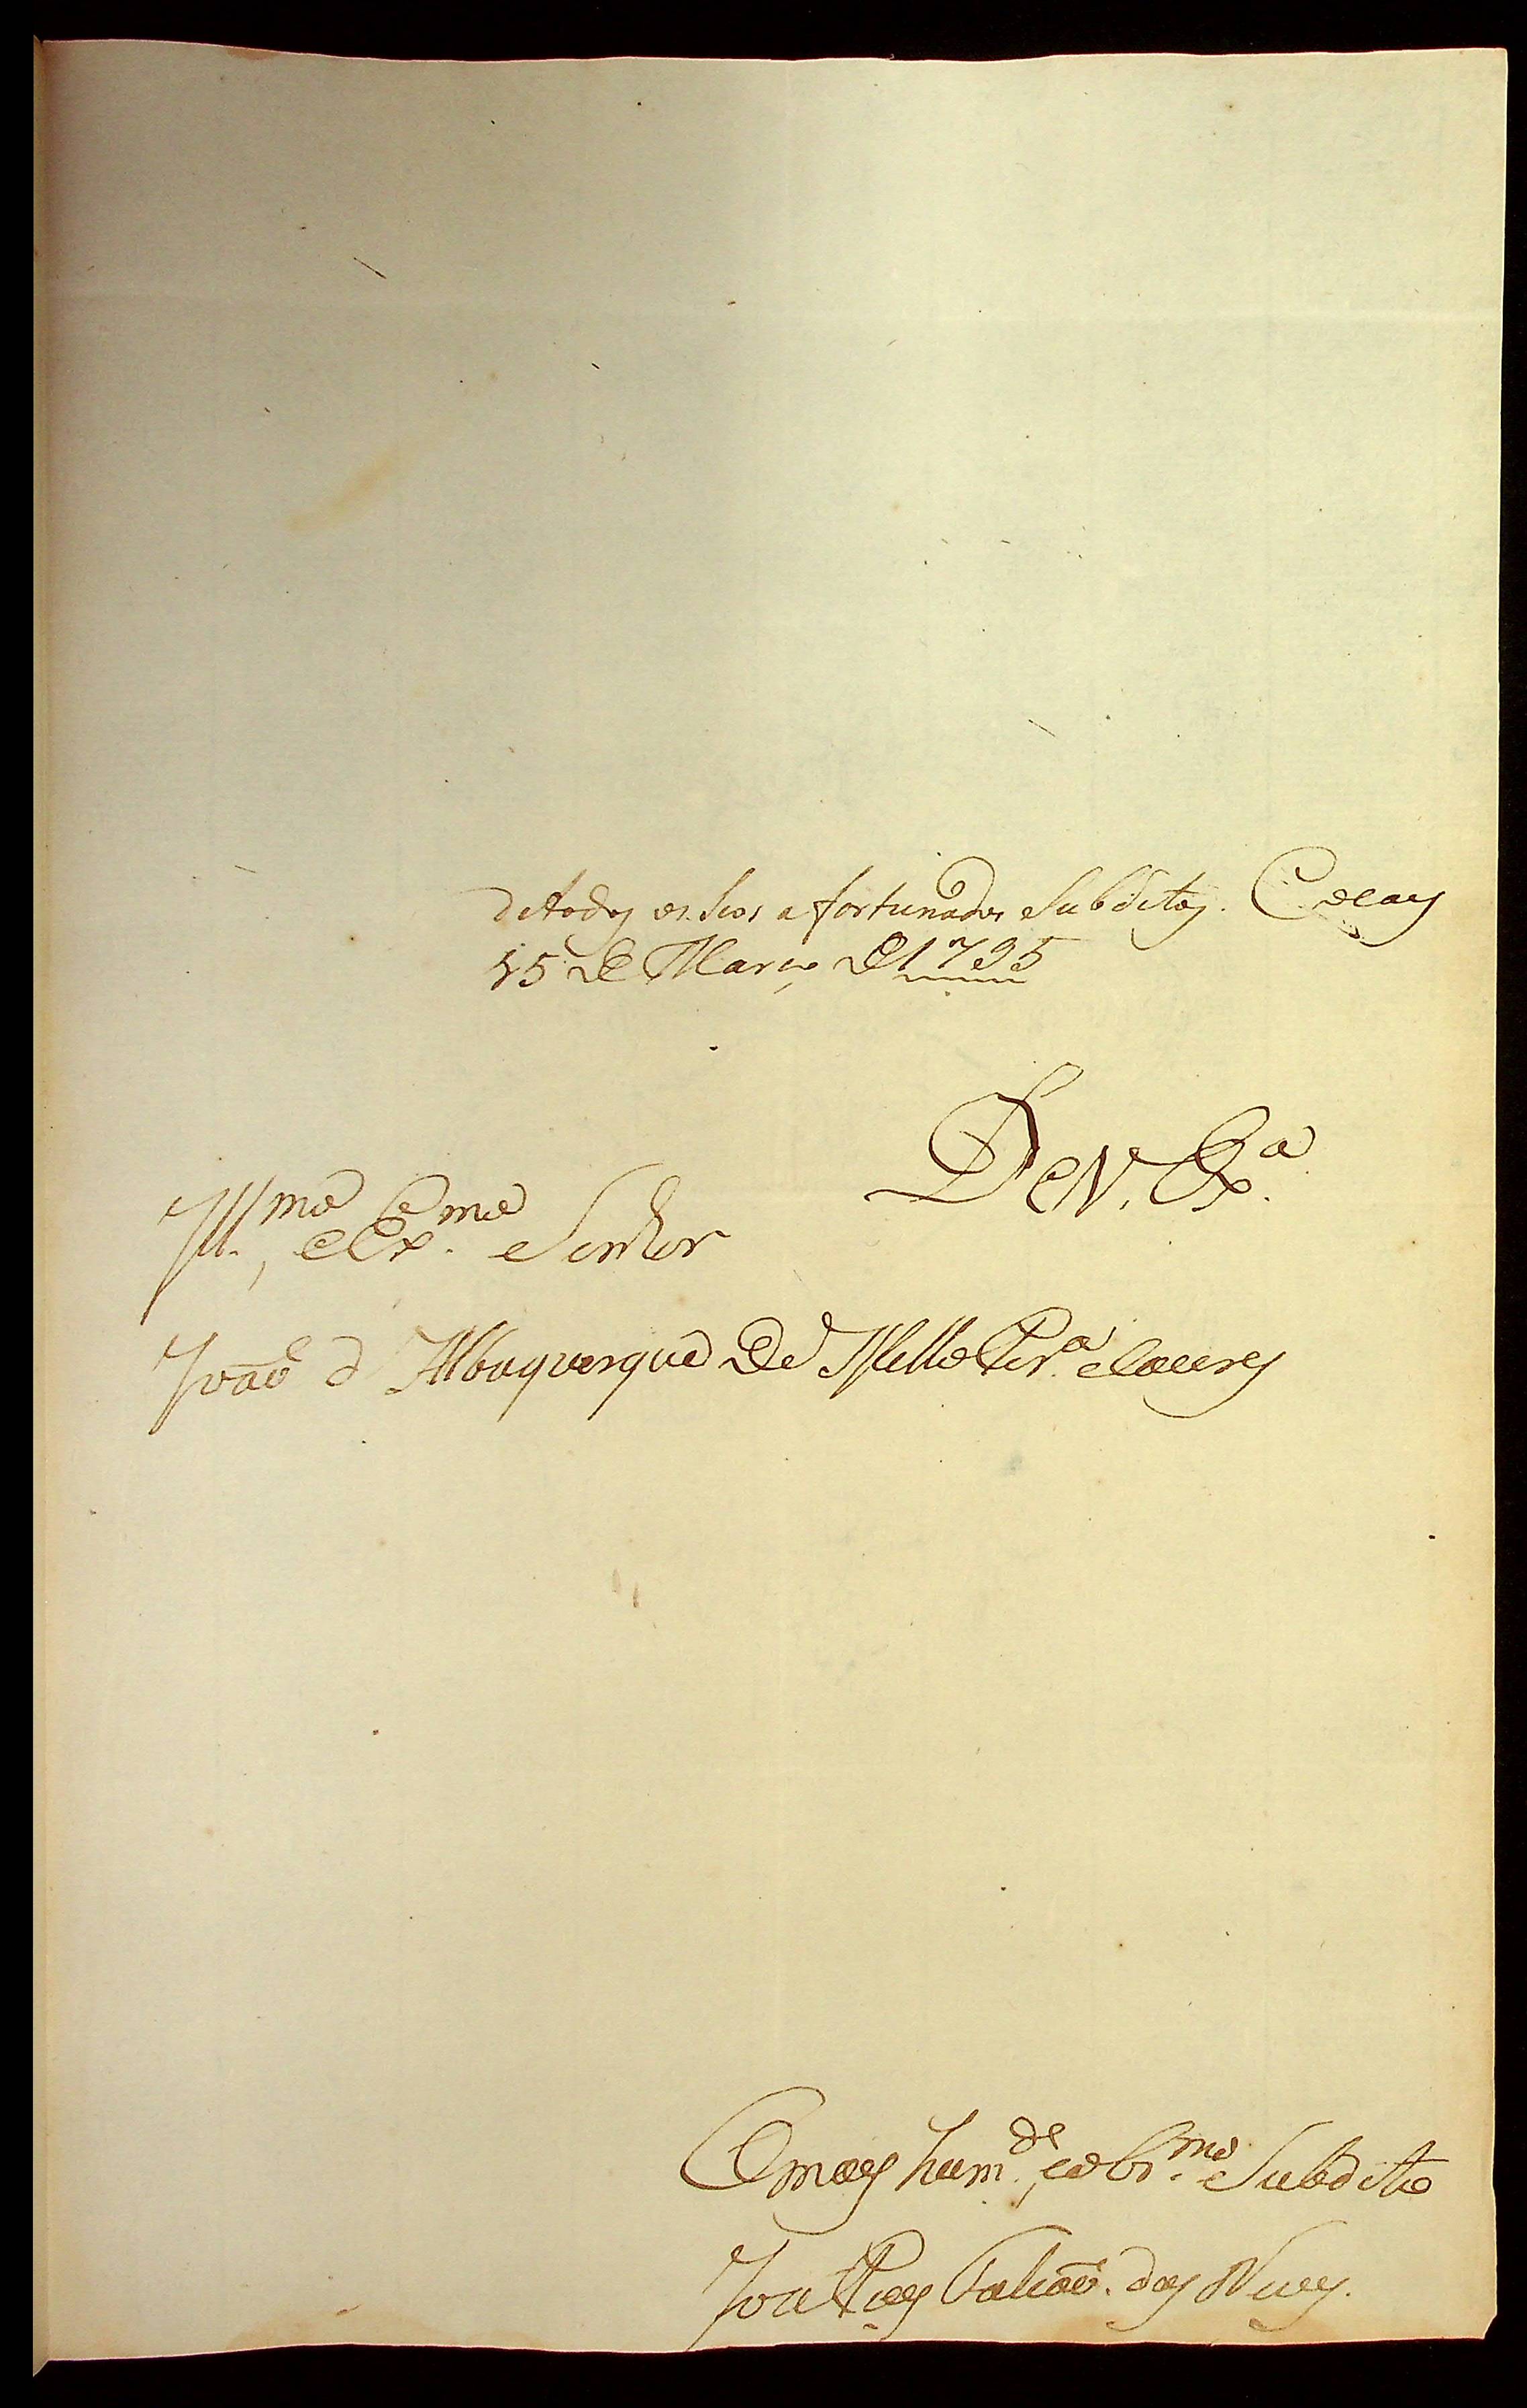 detodos os seos afortunados Subditos.
15 de Março de 1795
De V. Ex.ª
Ill.mo, e Ex.mo Senhor
João d' Albuquerque de Mello Per.ª e Caceres
O mais hum.de, e obr.mo Subdito
Joze Paes Falcaõ. das Neves.